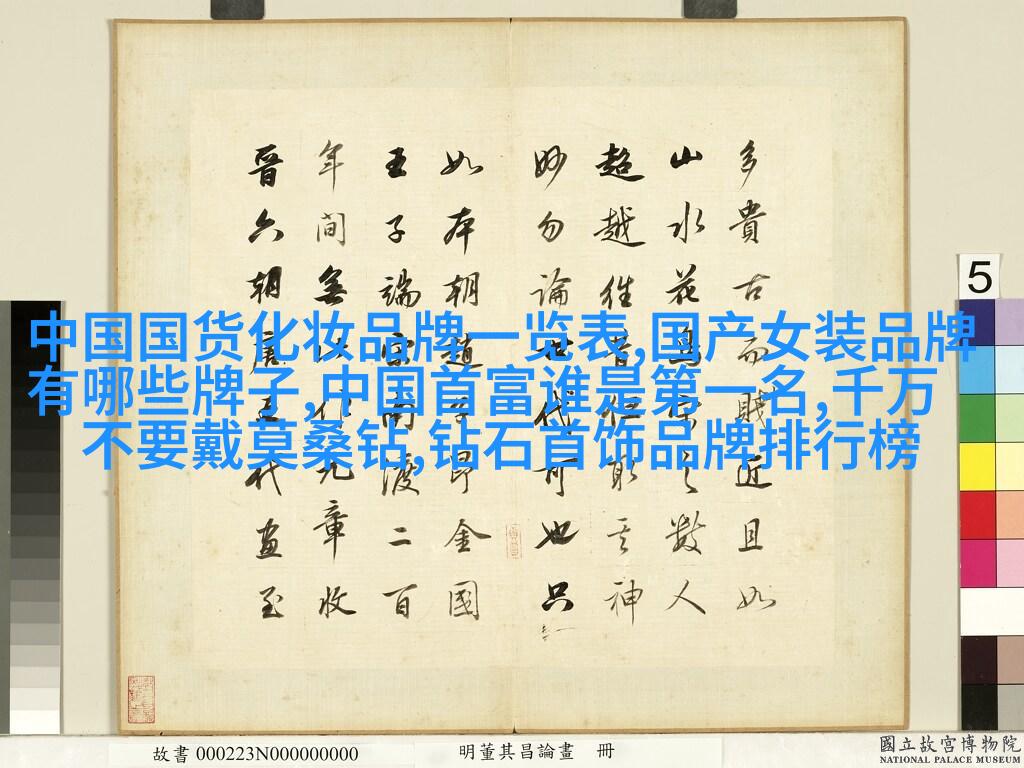 中国国货化妆品牌一览表,国产女装品牌
有哪些牌子,中国首富谁是第一名,千万
不要戴莫桑钻,钻石首饰品牌排行榜
多貴古而賤近且如
山水花鳥宋之數人
超越往昔但取其神
妙勿論世代可也只
如本朝趙子昂金國
王子端宋南渡二百
年間無此作元章收
晉六朝唐五代畫至
5
故書 000223N000000000
明董其昌論畫 冊
國立故宮博物院
NATIONAL PALACE MUSEUM